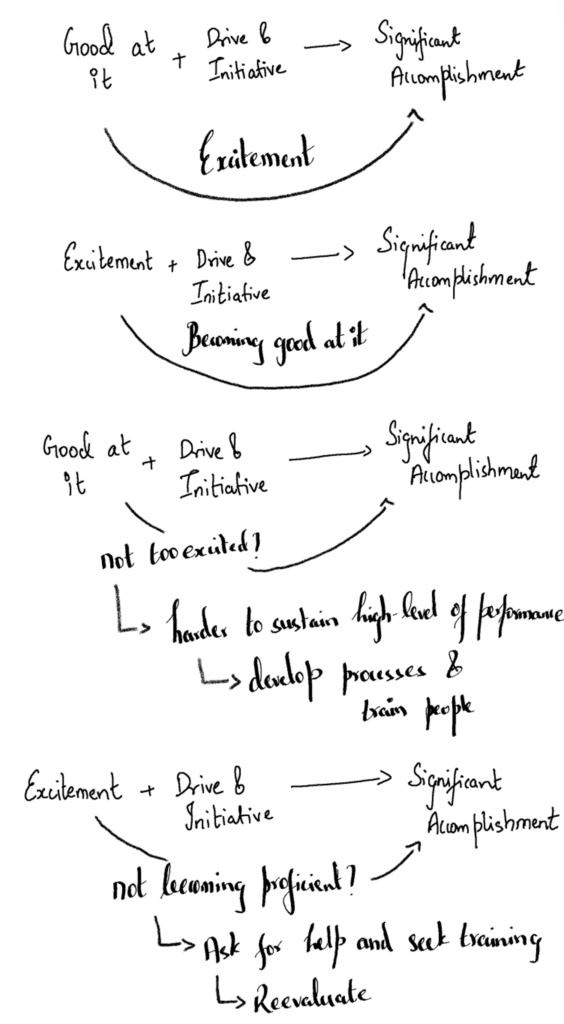 Good at + Drive & → Significant
it Initiative Accomplishment
Excitement
Excitement + Drive & → Significant
Initiative Accomplishment
Becoming good at it
Good at + Drive & → Significant
it Initiative Accomplishment
not too excited?
↳ harder to sustain high-level of performance
↳ develop processes &
train people
Excitement + Drive & → Significant
Initiative Accomplishment
not becoming proficient?
↳ Ask for help and seek training
↳ Reevaluate